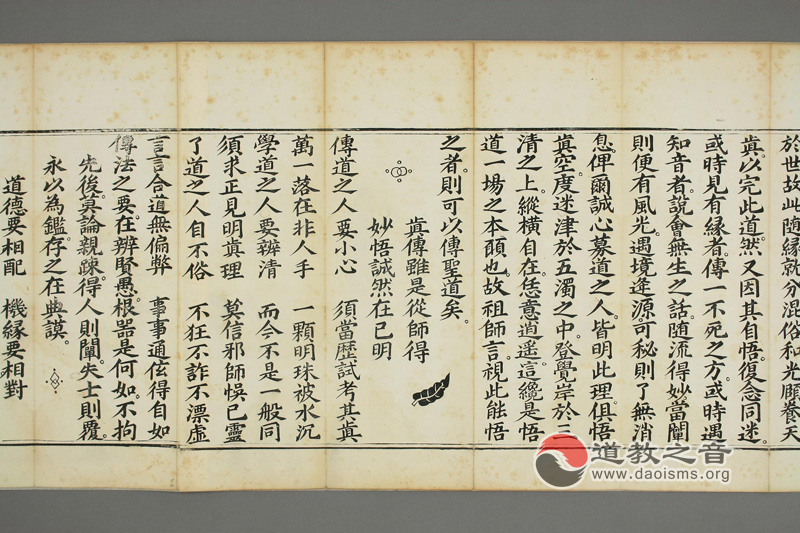 於世故此随緣就分混俗和光頤養天
眞以完此道然又因其自悟復念同迷
或時見有緣者傳一不死之方或時遇
知音者說會無生之話随流得妙當闡
則便有風光遇境逢源可秘則了無消
息俾爾誠心募道之人皆明此理俱悟
眞空度迷津於五濁之中登覺岸於三
清之上縱橫自在恁意逍遥這纔是悟
道一場之本頭也故祖師言視此能悟
之者則可以傳聖道矣
眞傳雖是從師得
妙悟誠然在已明
傳道之人要小心 須當歷試考其眞
萬一落在非人手 一顆明珠被水沉
學道之人要辨清 而今不是一般同
須求正見明眞理 莫信邪師悞已靈
了道之人自不俗 不狂不詐不漂虛
言言合道無偏弊 事事通伭得自如
傳法之要在辨賢愚根器是何如不拘
先後莫論親踈得人則闡失士則覆
永以為鑑存之在典謨
道德要相配 機緣要相對
道教之音
www.daoisms.org